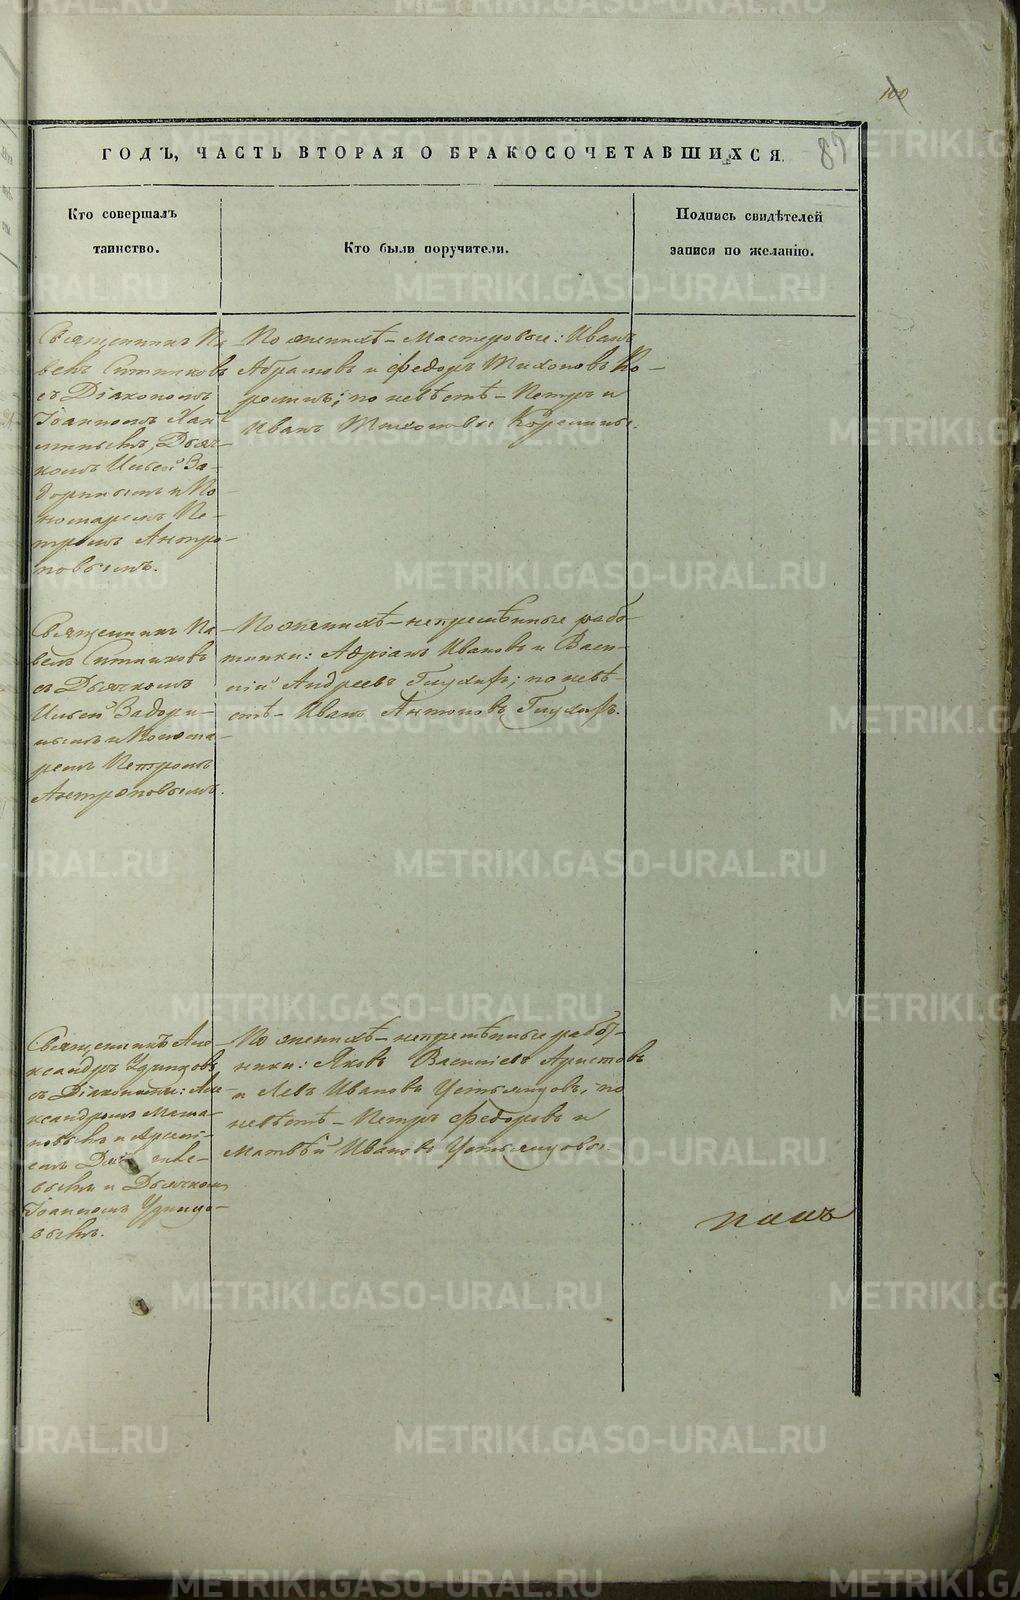 100
87
ГОДЪ, ЧАСТЬ ВТОРАЯ О БРАКОСОЧЕТАВШИХСЯ.
Кто совершалъ
таинство.
Кто были поручители.
Подпись свидѣтелей
записи по желанію.
Священникъ Па-
велъ Ситниковъ
съ Діакономъ
Іоанномъ
Дьяч-
комъ Ильею За-
дориныmъ и По-
номаремъ Пе-
тромъ Антро-
повымъ.
По женихѣ – Мастеровые: Иванъ
Абрамовъ и Федоръ Тихоновъ
по невѣстѣ – Петръ и
Иванъ Тихоновы
Священникъ Па-
велъ Ситниковъ
съ Дьячкомъ
Ильею Задори-
нымъ и Понома-
ремъ Петромъ
Антроповымъ.
По женихѣ – непремѣнные рабо-
тники: Адріанъ Ивановъ и Васи-
лій Андреевъ Глухихъ; по невѣ-
стѣ – Иванъ Антоновъ Глухихъ.
Священникъ Але-
ксандръ Удинцовъ
съ Діаконами: Але-
ксандромъ Мама-
и Арсені-
емъ
и Дьячкомъ
Іоанномъ Удинцо-
вымъ.
По женихѣ – непремѣнные работ-
ники: Яковъ Васильевъ Аристовъ
и Левъ Ивановъ Устьянцовъ, по
невѣстѣ – Петръ Федоровъ и
Матвѣй Ивановъ Устьянцовы.
METRIKI.GASO-URAL.RU